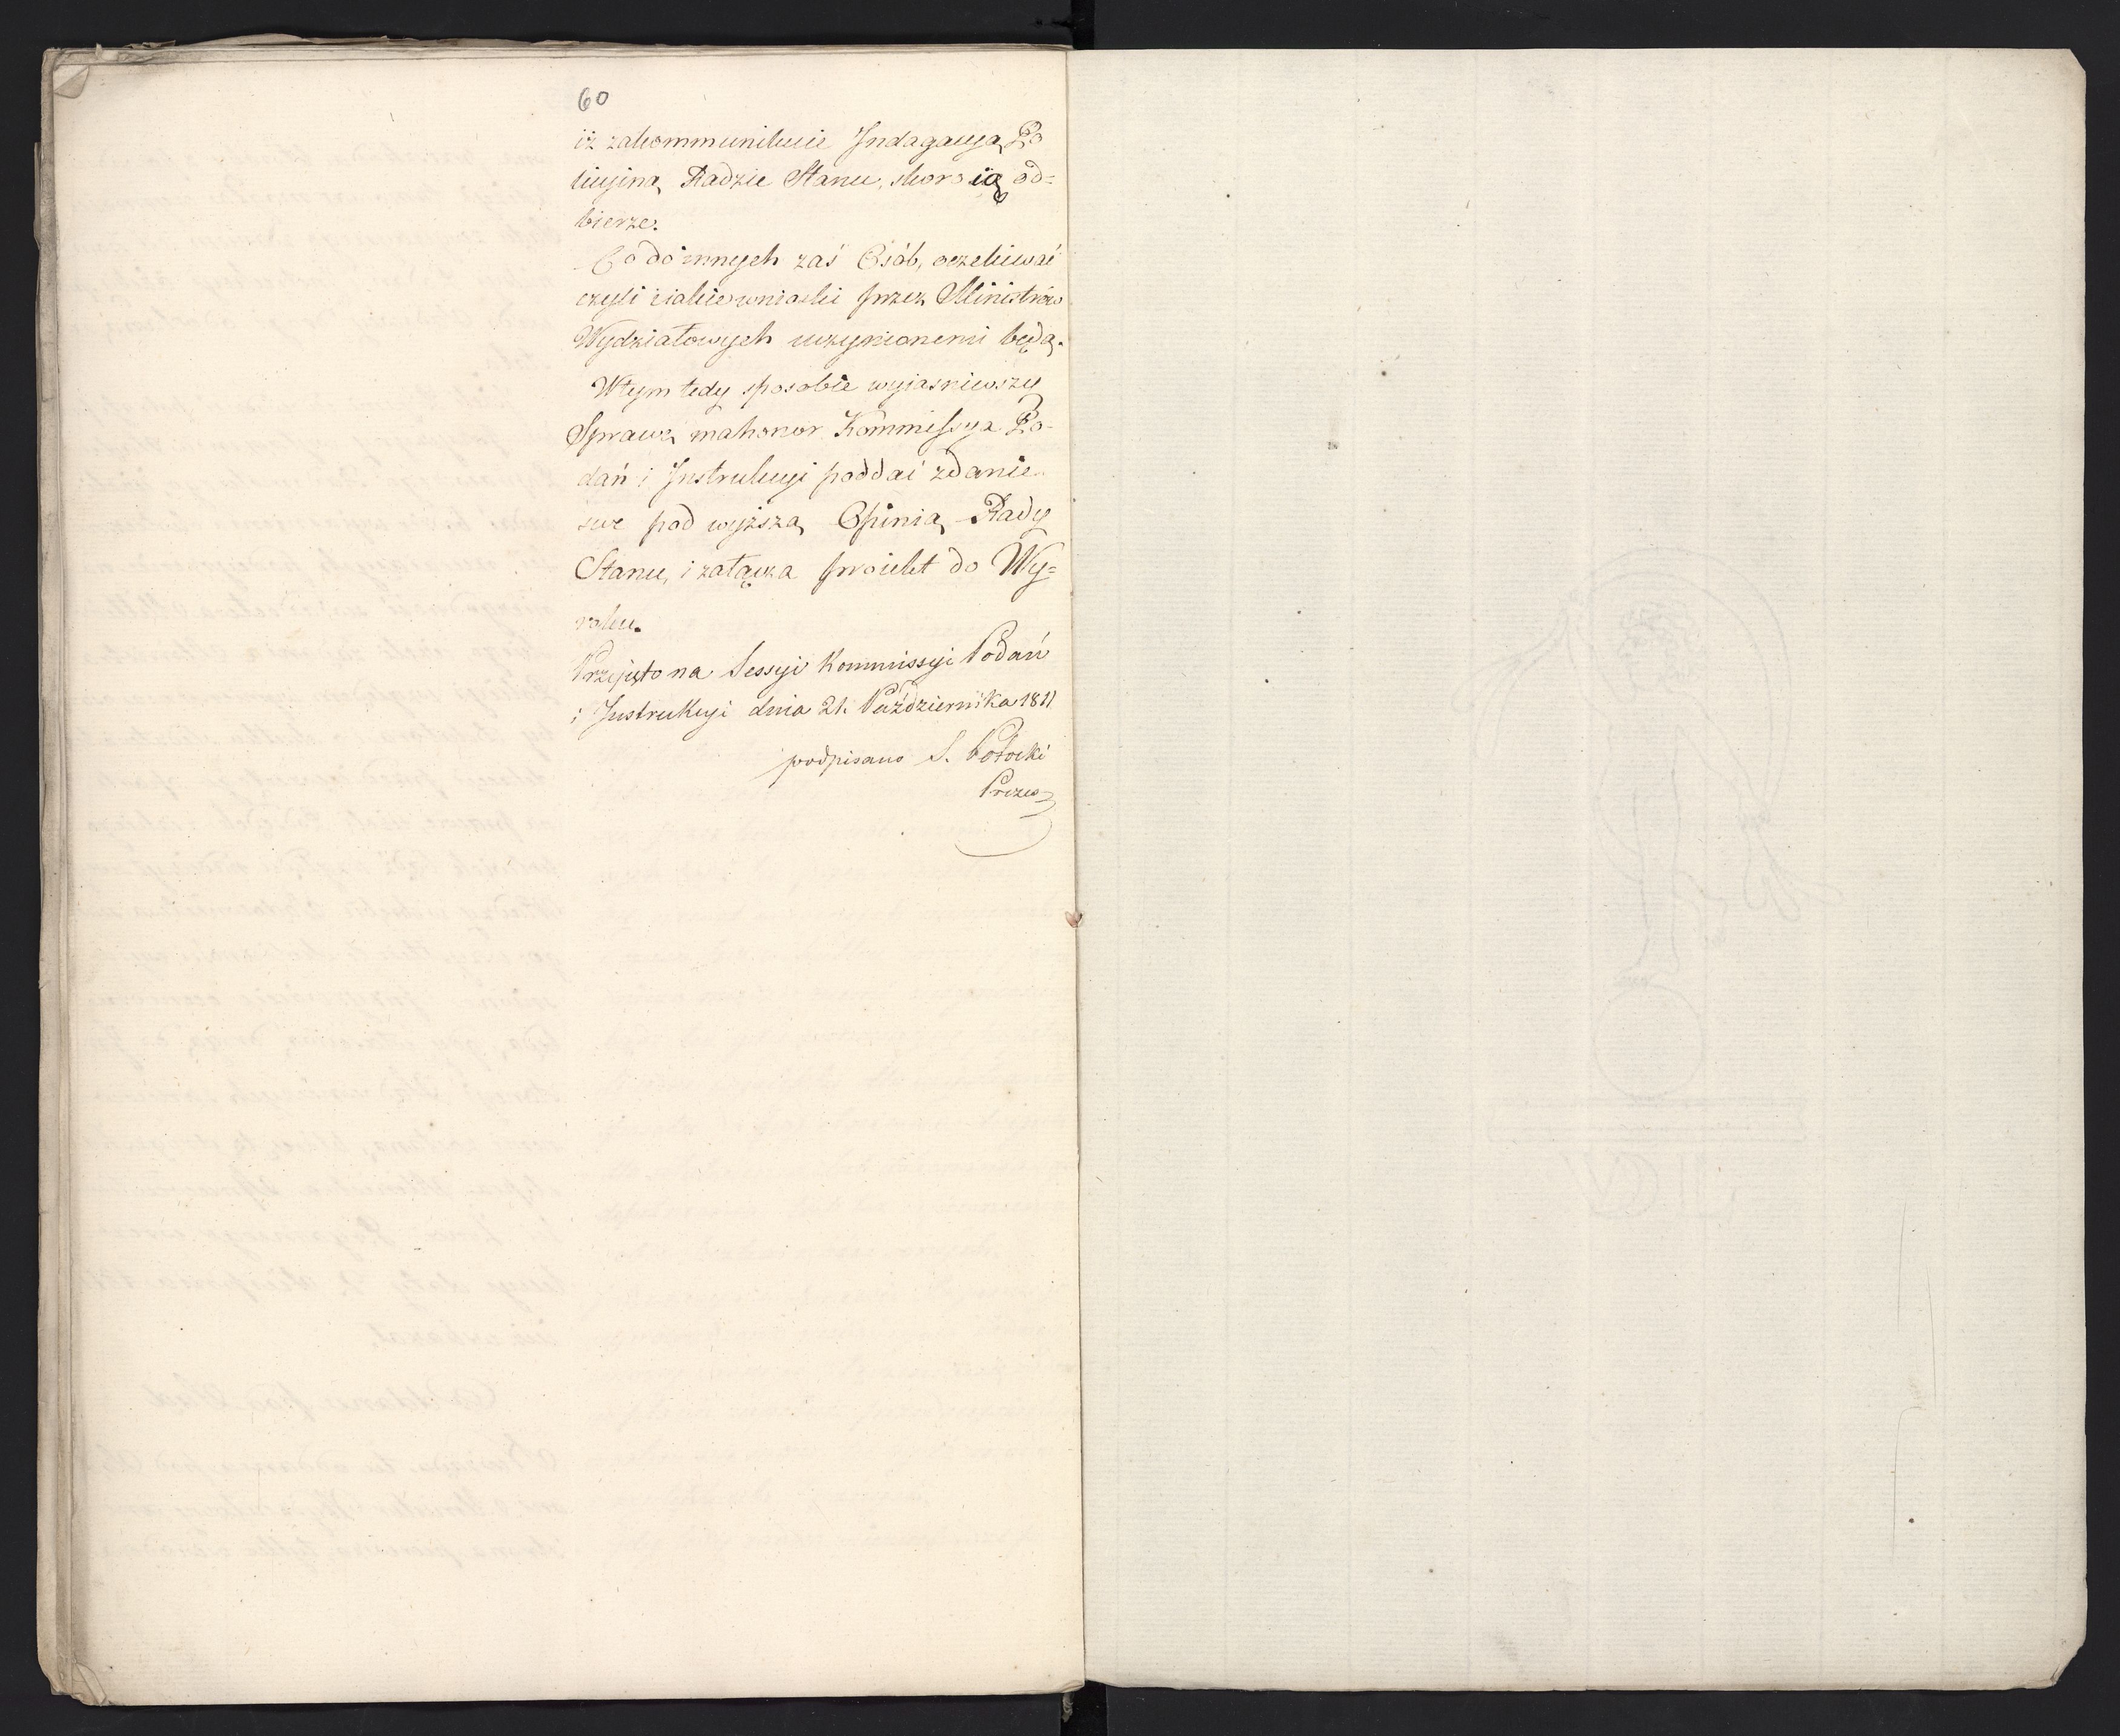 60
iż zakommunikuie Indagacyą Po
licyiną Radzie Stanu, skoro ią od=
bierze.
Co do innych zaś Osób, oczekiwać
czyli i iakie wnioski przez Ministrów
Wydziałowych uczynionemi będą.
W tym tedy sposobie wyiasniwszy
Sprawę ma honor Kommissya Po-
dań i Instrukcyi poddać zdanie
swe pod wyższą Opinią Rady
Stanu, i załącza proiekt do Wy=
roku.
Przyjęto na Sessyi Kommissyi Podań
i Instrukcyi dnia 21. Października 1811
podpisano S. Potocki
Prezes